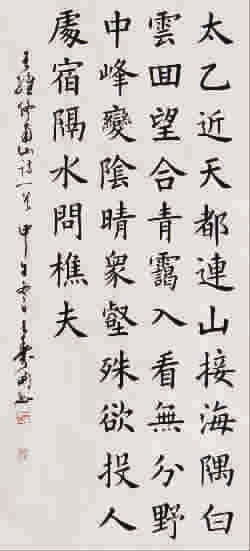 太乙近天都連山接海隅白
雲囬望合青靄入看無分野
中峰變陰晴衆壑殊欲投人
處宿隔水問樵夫
王維終南山詩一首甲午冬日王